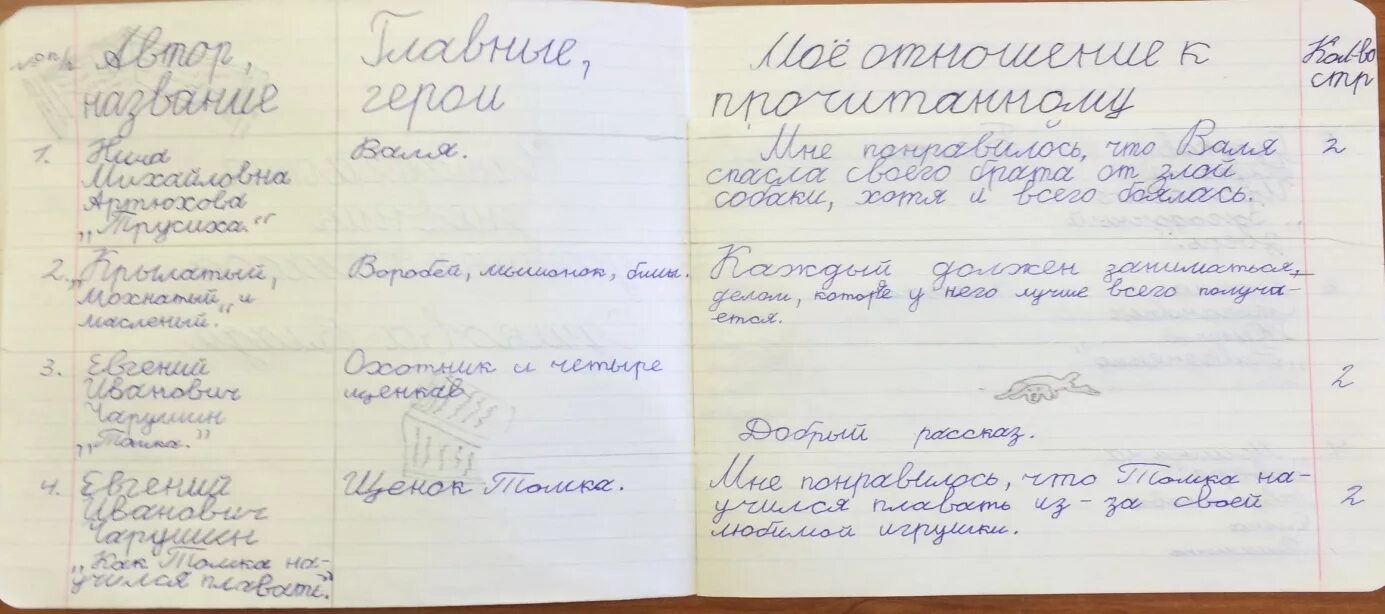 Автор, название
Главные, герои
Моё отношение к прочитанному
Кол-во стр
1. Нина
Михайловна
Артюхова
„Трусиха.“
Валя.
Мне понравилось, что Валя
спасла своего брата от злой
собаки, хотя и всего боялась.
2
2. „Крылатый,
мохнатый и
масленый.“
Воробей, мышонок, блины.
Каждый должен заниматься,
делом, которые у него лучше всего получа-
ется.
3. Евгений
Иванович
Чарушин
„Томка.“
Охотник и четыре
щенков
Добрый рассказ.
2
4. Евгений
Иванович
Чарушин
„Как Томка на-
учился плавать.“
Щенок Томка.
Мне понравилось, что Томка на-
учился плавать из-за своей
любимой игрушки.
2